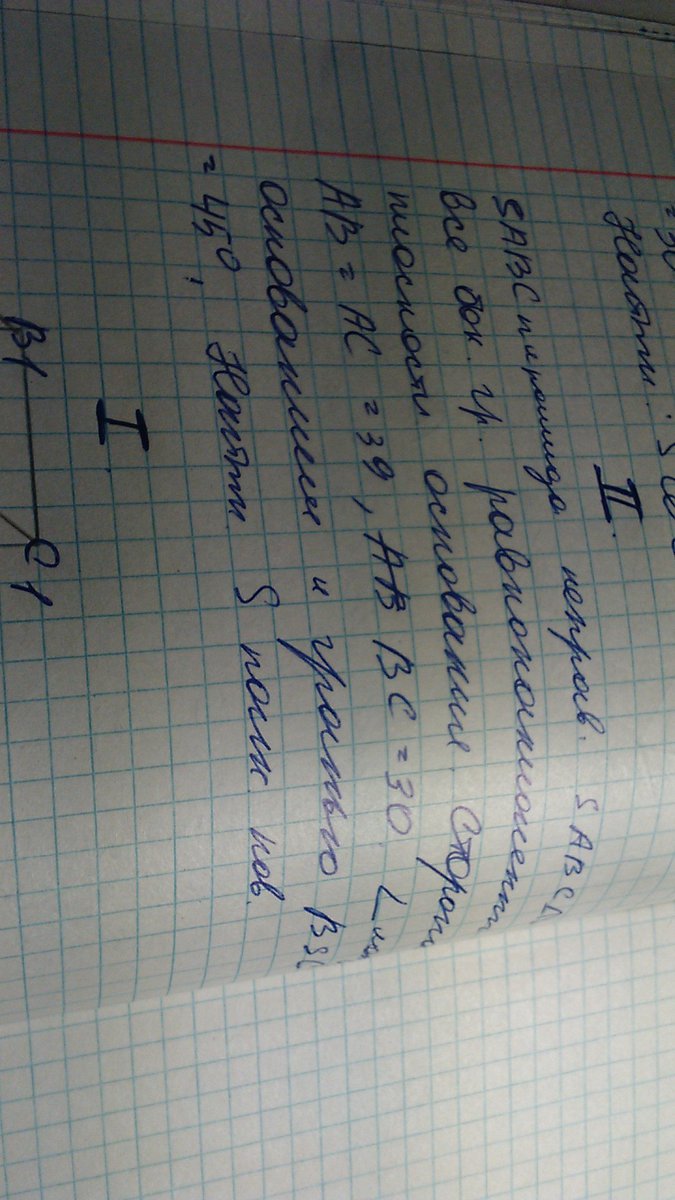 = 30
Найти: S
II.
SABC пирамида неправ. SABC
все бок. гр. равнонаклонены
плоскости основания. Сторон
AB = AC = 39, BC = 30.
основанием и гранью BSC
= 45°. Найти S полн. пов.
I
B1 C1